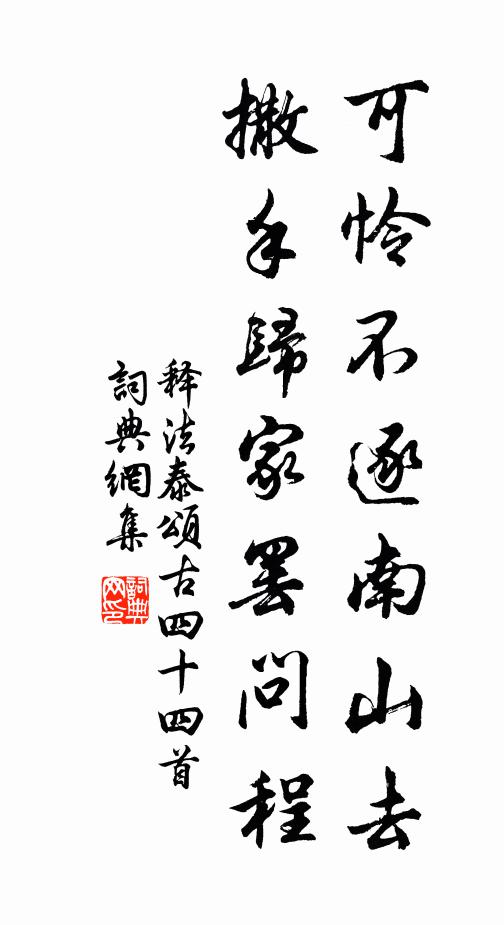 可怜不逐南山去
撒手歸家罢問程
释法泰頌古四十四首
詞典網集
詞典
网印